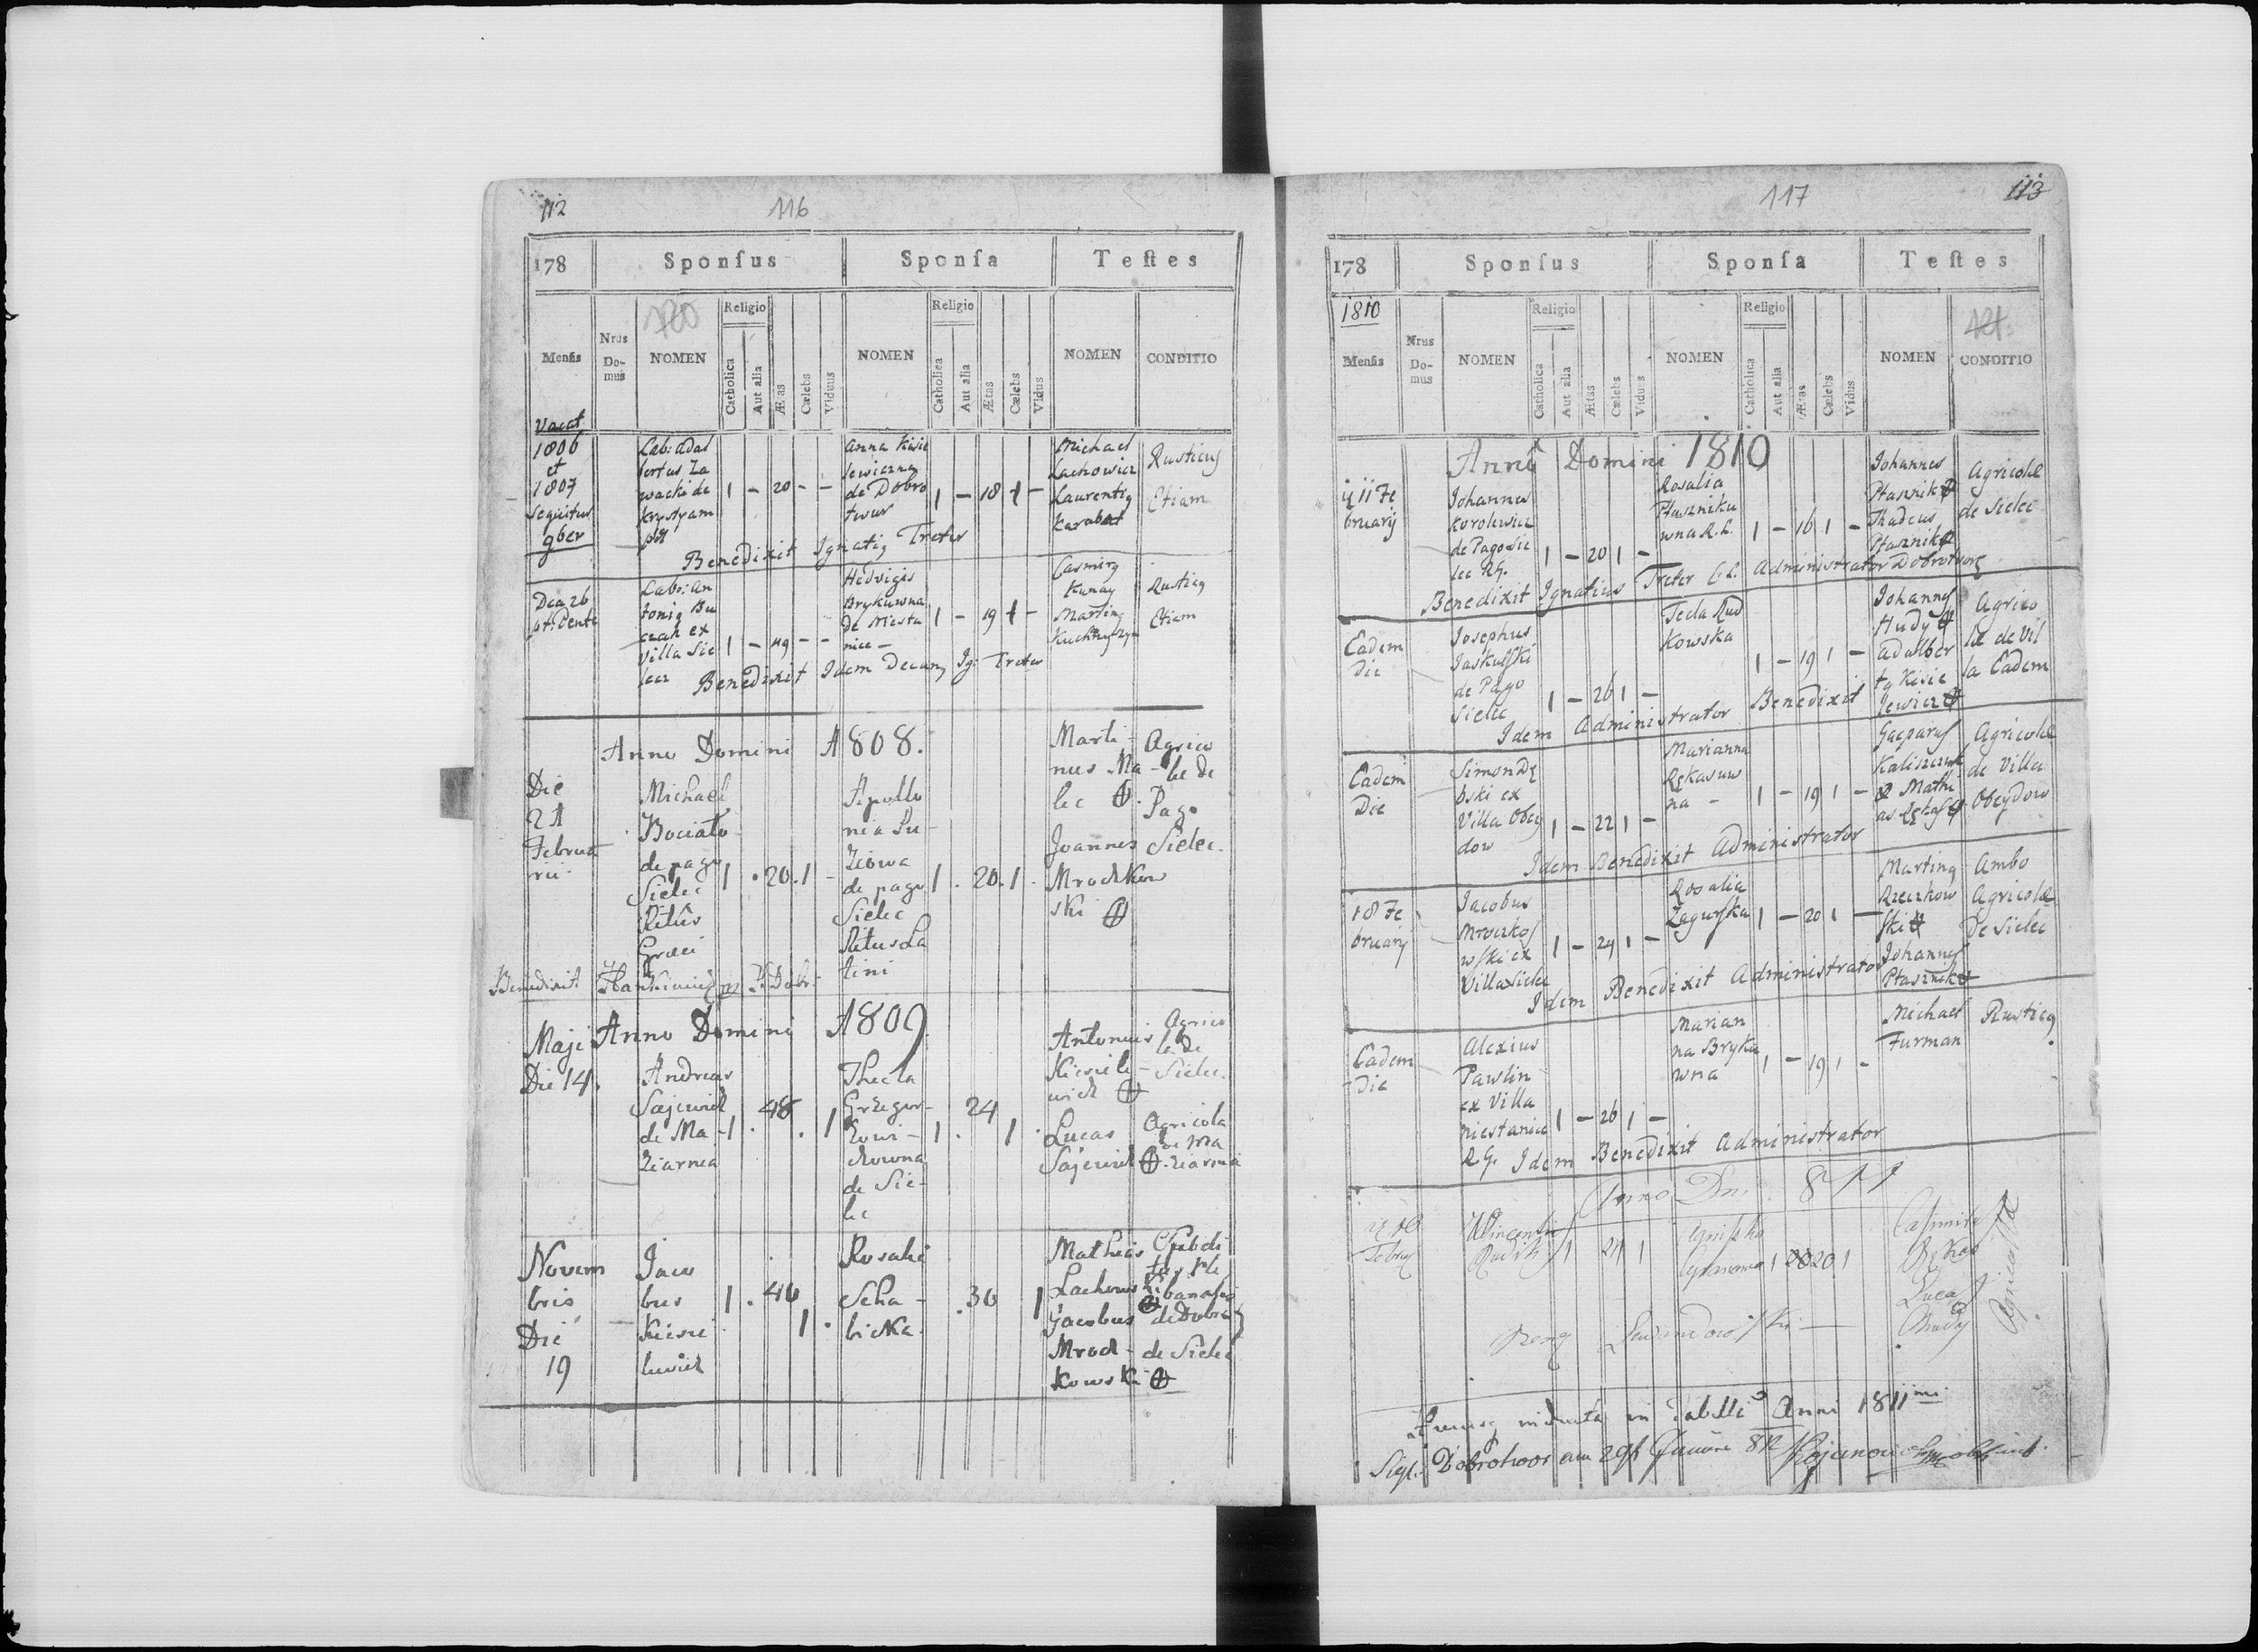 112
116
178
Sponſus
Sponſa
Teſtes
Menſis
Nrus Do-mus
NOMEN
Religio
Catholica
Aut alia
Ætas
Cælebs
Viduus
NOMEN
Religio
Catholica
Aut alia
Ætas
Cælebs
Vidus
NOMEN
CONDITIO
Vacat
1806
et
1807
Sequitur
9ber
Lab: Adal
bertus Za
wacki de
Krystyam
pol
1 - 20 - -
Anna Kisie
lewiczna
de Dobro
twor
1 - 18 + -
Michael
Lachowicz
Laurenti9
Karabat
Rusticus
Etiam
Benedixit Ignati9 Treter
Dea 26
Lab: An
toni9 Bu
czak ex
Villa Sie
lecz
1 - 49 - -
Hedvigis
Brykuwna
de Niesta
nice -
1 - 19 + -
Casmir9
Kunay
Martin9
Rustic9
Etiam
Benedixit Idem Decan9 Ig: Treter
Anno Domini 1808.
Die
21
Februa
rii
Michael
Bociato
de pago
Sielec
Ritus
Græci
1 . 20 . 1 -
Apollo
nia Pu
ziowa
de pago
Sielec
Ritus La
tini
1 . 20 . 1 .
Marti-
nus Ma-
lec
Joannes
Mrodkow
ski
Agrico
læ de
Pago
Sielec.
Benedixit
Anno Domini 1809
Maji
Die 14.
Andreas
Sajewicz
de Ma-
ziarnia
1 . 48 . 1
Thecla
Grzego-
rowi-
czowna
de Sie-
lec
1 . 24 1
Antonius
Kisiele-
wicz
Lucas
Sajewicz
Agrico
læ de
Sielec.
Agricola
de Ma
ziarnia
Novem
bris
Die
19
Jaco
bus
Kisie
lewicz
1 . 46 1 .
Rosalia
Scha-
bicka
. 36 1
Mathias
Lachowicz
Jacobus
Mrod-
kowski
de Sielec
117
113
178
Sponſus
Sponſa
Teſtes
1810
Menſis
Nrus Do-mus
NOMEN
Religio
Catholica
Aut alia
Ætas
Cælebs
Vidus
NOMEN
Religio
Catholica
Aut alia
Ætas
Cælebs
Vidus
NOMEN
CONDITIO
Anno Domini 1810
11 Fe
bruarij
Johannes
Korolewicz
de Pago Sie
lec R.G.
1 - 20 1 -
Rosalia
Ptaszniku
wna R.L.
1 - 16 1 -
Johannes
Ptasznik
Thadeus
Ptasznik
Agricolæ
de Sielec
Benedixit Ignatius Treter C.L. Administrator Dobrotwor
Eadem
Die
Josephus
Jaskulski
de Pago
Sielec
1 - 26 1 -
Tecla Rud
kowska
1 - 19 1 -
Johannes
Hudy
Adalber
t9 Kisie
lewicz
Agrico
læ de Vil
la Eadem
Idem Administrator Benedixit
Eadem
Die
Simon Dę
bski ex
Villa Obey
dow
1 - 22 1 -
Marianna
Rękasuw
na -
1 - 19 1 -
Gasparus
Kaliszczuk
& Mathi
as Rękas
Agricolæ
de Villa
Obeydow
Idem Benedixit Administrator
18 Fe
bruarij
Jacobus
Mroczko
wski ex
Villa Sielec
1 - 24 1 -
Rosalia
Zagurska
1 - 20 1 -
Martin9
Rzeczkow
ski
Johannes
Ptasznik
Ambo
Agricolæ
de Sielec
Idem Benedixit Administrator
Eadem
Die
Alexius
Pawlin
ex Villa
Niestanice
R.G.
1 - 26 1 -
Marian
na Bryku
wna
1 - 19 1 -
Michael
Furman
Rustic9
Idem Benedixit Administrator
Anno Dni. 811
Febru
1 24 1
1 20 1
Casimir
Lucas
Hudy
Agricola
Lewandowski
in Tabella Anni 1811
Dobrotwor